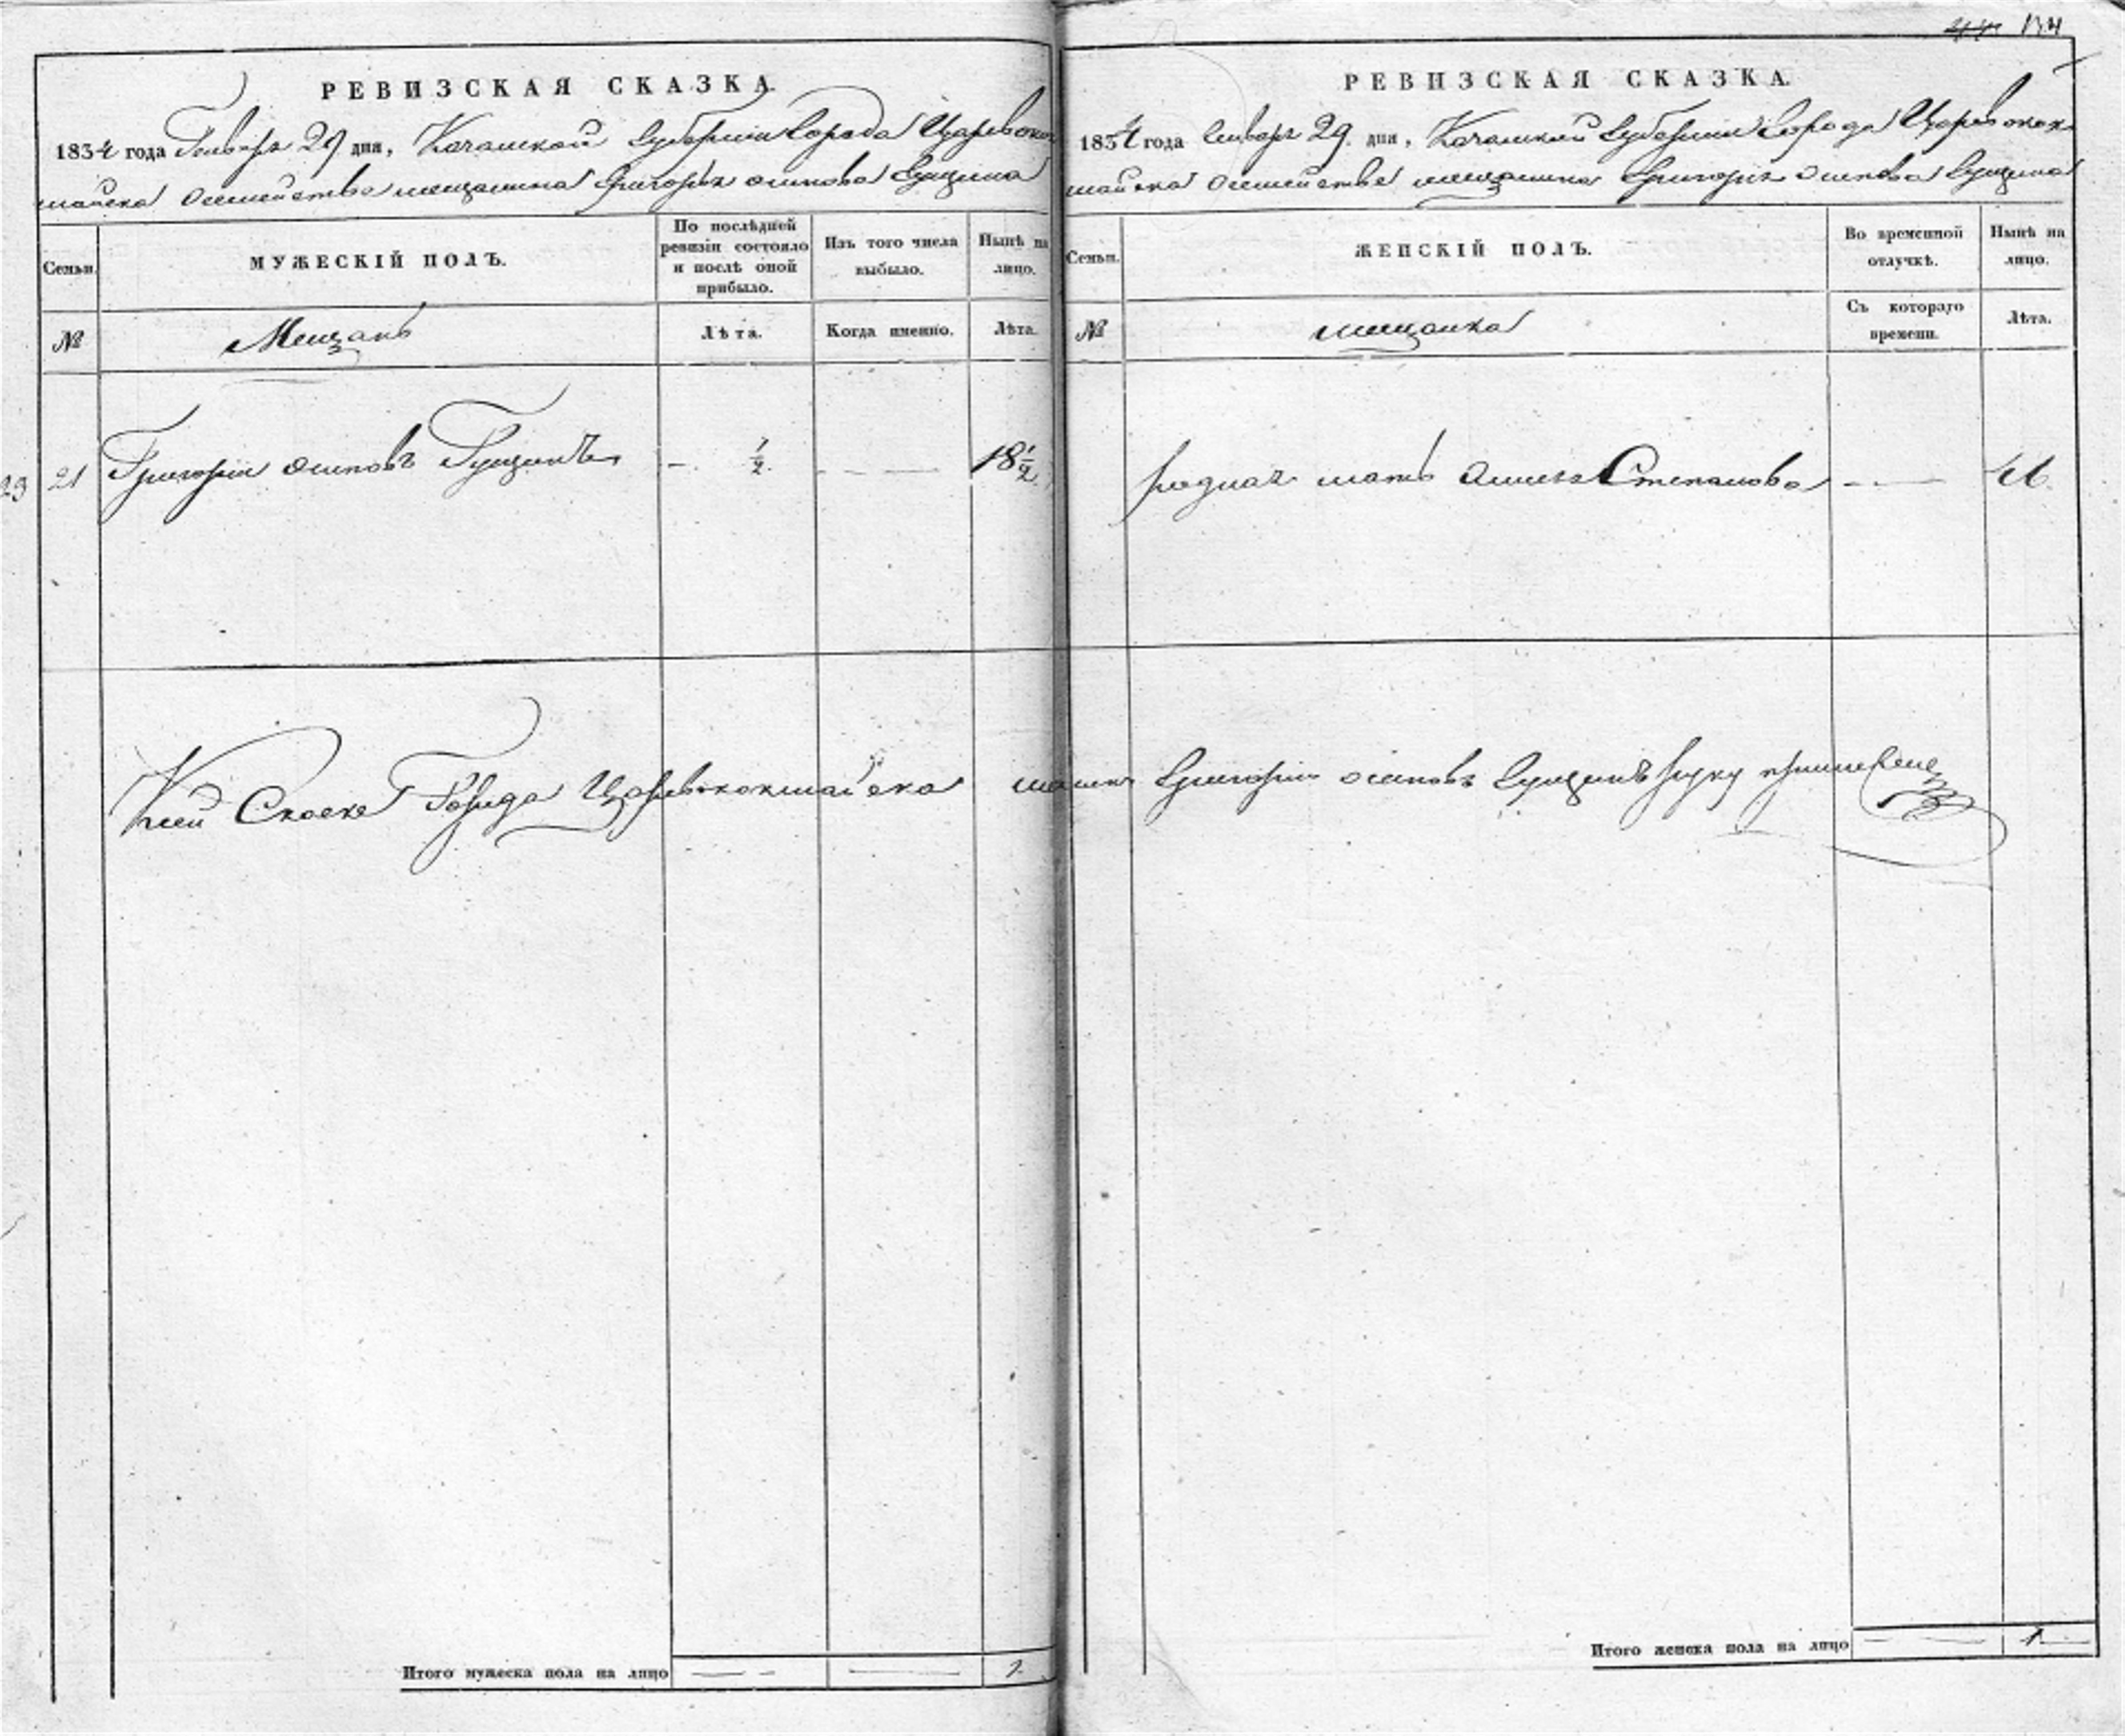 134
РЕВИЗСКАЯ СКАЗКА.
1834 года Генваря 29 дня, Казанской Губернии Города Царевокок
шайска о семействе мещанина Григорья Осипова Гущина
Семьи.
МУЖЕСКІЙ ПОЛЪ.
По послѣдней ревизіи состояло и послѣ оной прибыло.
Изъ того числа выбыло.
Нынѣ на лицо.
№
Мещанъ
Лѣта.
Когда именно.
Лѣта.
23 21 Григорий Осиповъ Гущинъ — ½ — 18½
Итого мужеска пола на лицо — — 1.
РЕВИЗСКАЯ СКАЗКА.
1834 года Генваря 29 дня, Казанской Губернии Города Царевококъ
шайска о семействе мещанина Григорья Осипова Гущина
Семьи.
ЖЕНСКІЙ ПОЛЪ.
Во временной отлучкѣ.
Нынѣ на лицо.
№
мещанка
Съ котораго времени.
Лѣта.
родная мать Степанова —
К сей Скаске Города Царевококшайска Григорий Осиповъ Гущинъ руку
Итого женска пола на лицо — 1.